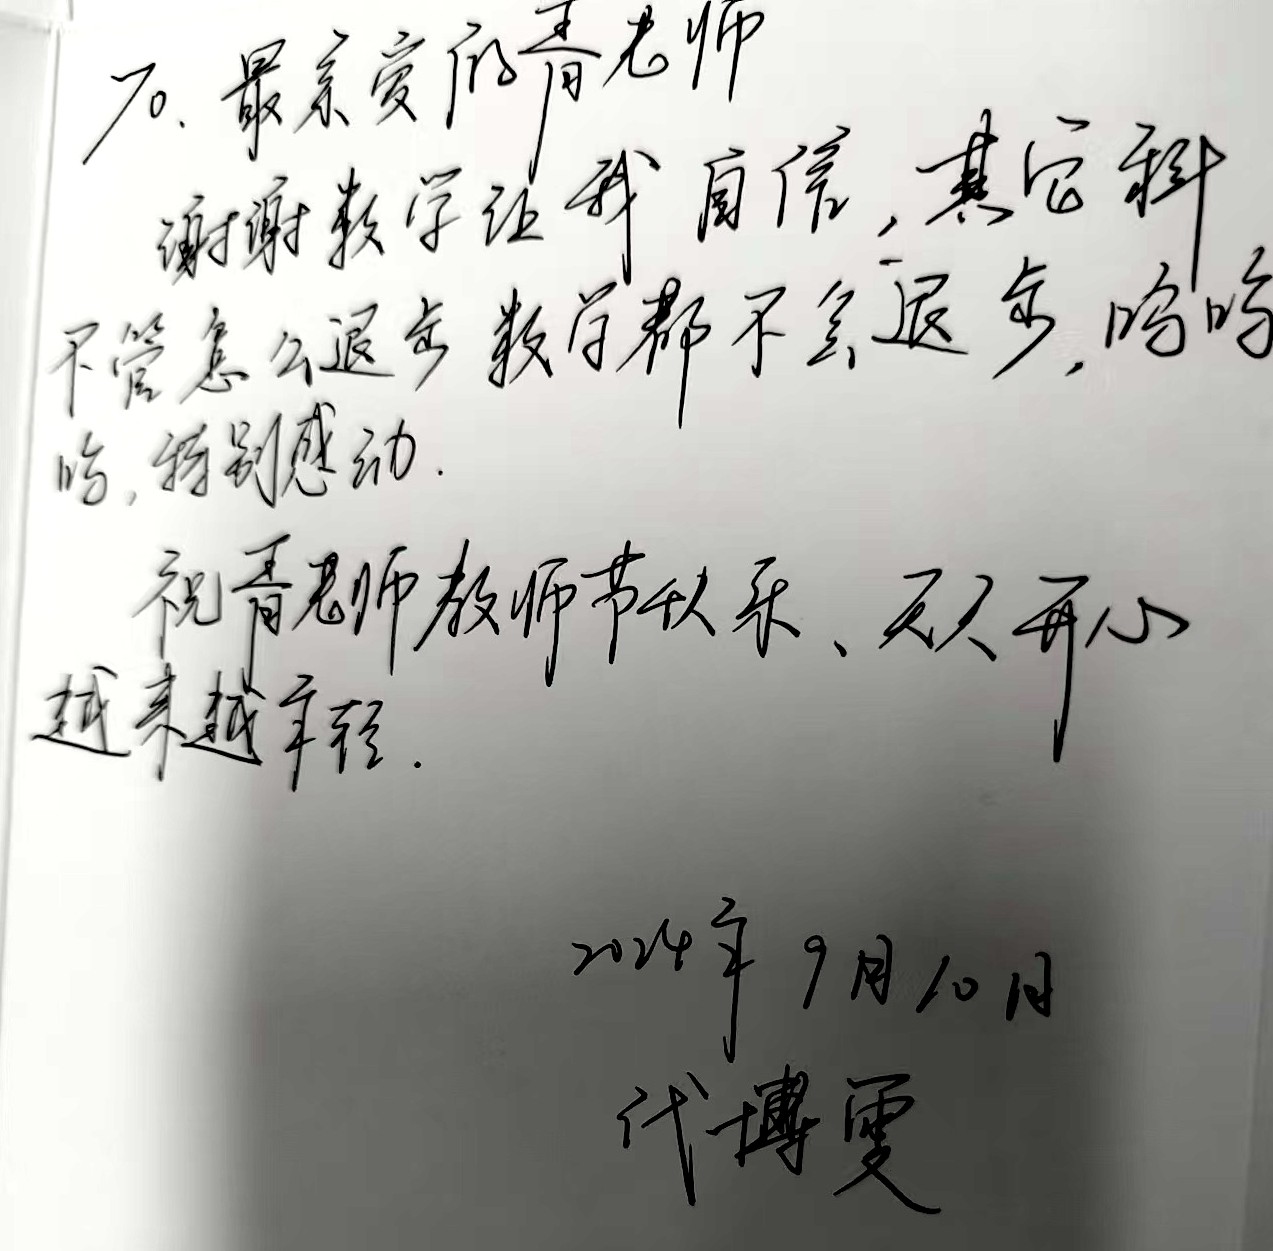 70.最亲爱的青老师
谢谢数学让我自信,其它科
不管怎么退步数学都不会退步,呜呜
呜,特别感动.
祝青老师教师节快乐、天天开心
越来越年轻.
2024年9月10日
代博雯